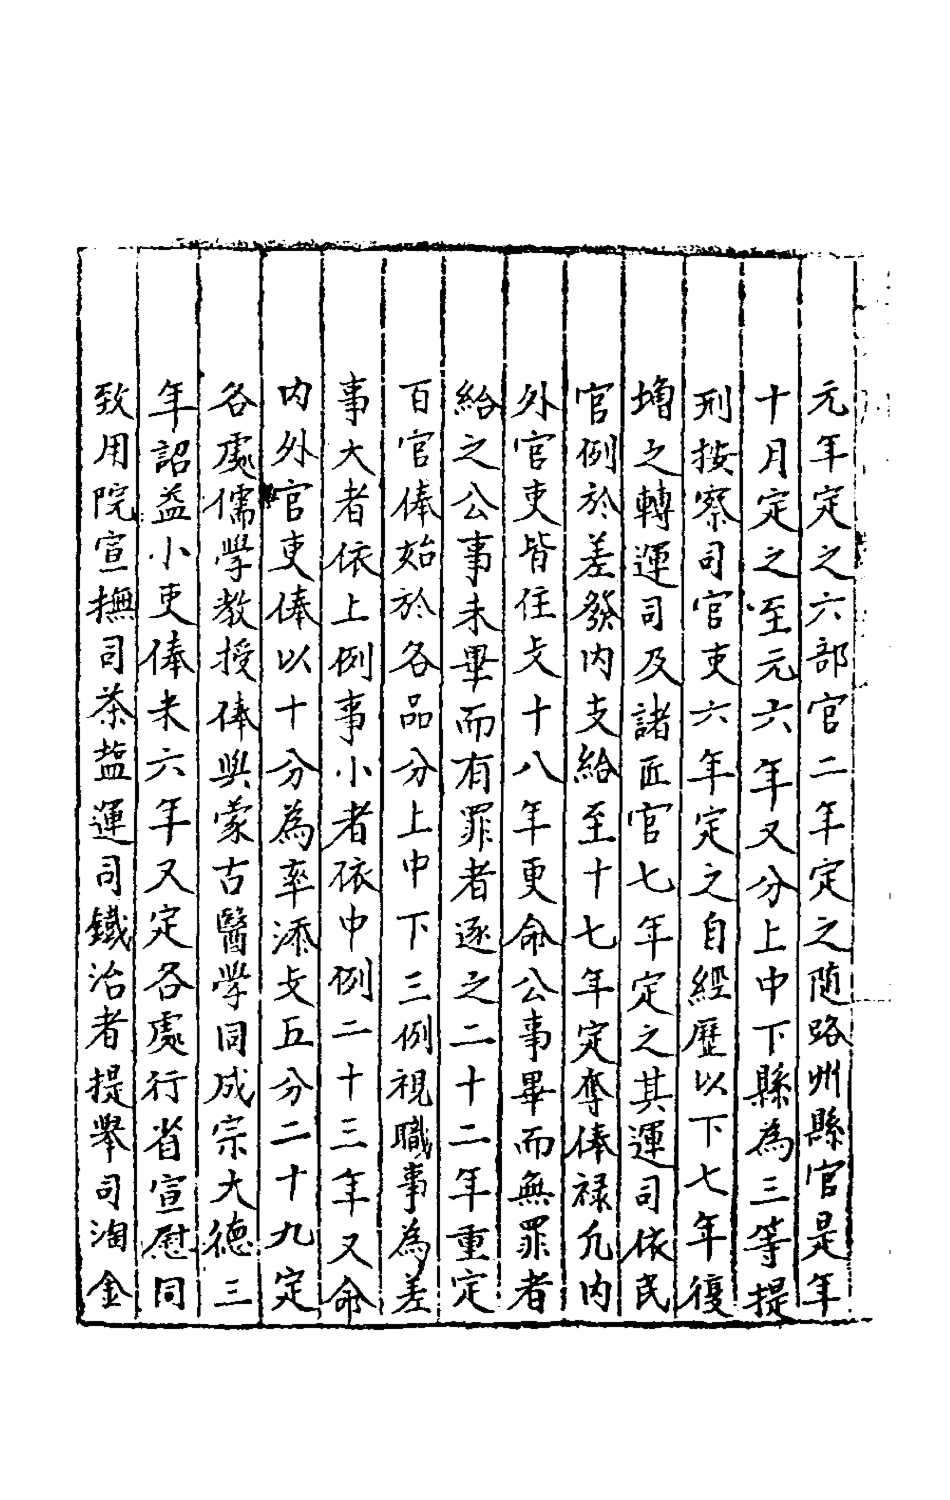 元年定之六部官二年定之随路州縣官是年
十月定之至元六年又分上中下縣為三等提
刑按察司官吏六年定之自經歷以下七年復
増之轉運司及諸匠官七年定之其運司依民
官例於差發内支給至十七年定奪俸禄凢内
外官吏皆住支十八年更命公事畢而無罪者
給之公事未畢而有罪者逐之二十二年重定
百官俸始於各品分上中下三例視職事為差
事大者依上例事小者依中例二十三年又命
内外官吏俸以十分為率添支五分二十九定
各處儒學教授俸與蒙古醫學同成宗大德三
年詔益小吏俸米六年又定各處行省宣慰同
致用院宣撫司茶鹽運司鐵冶者提舉司淘金